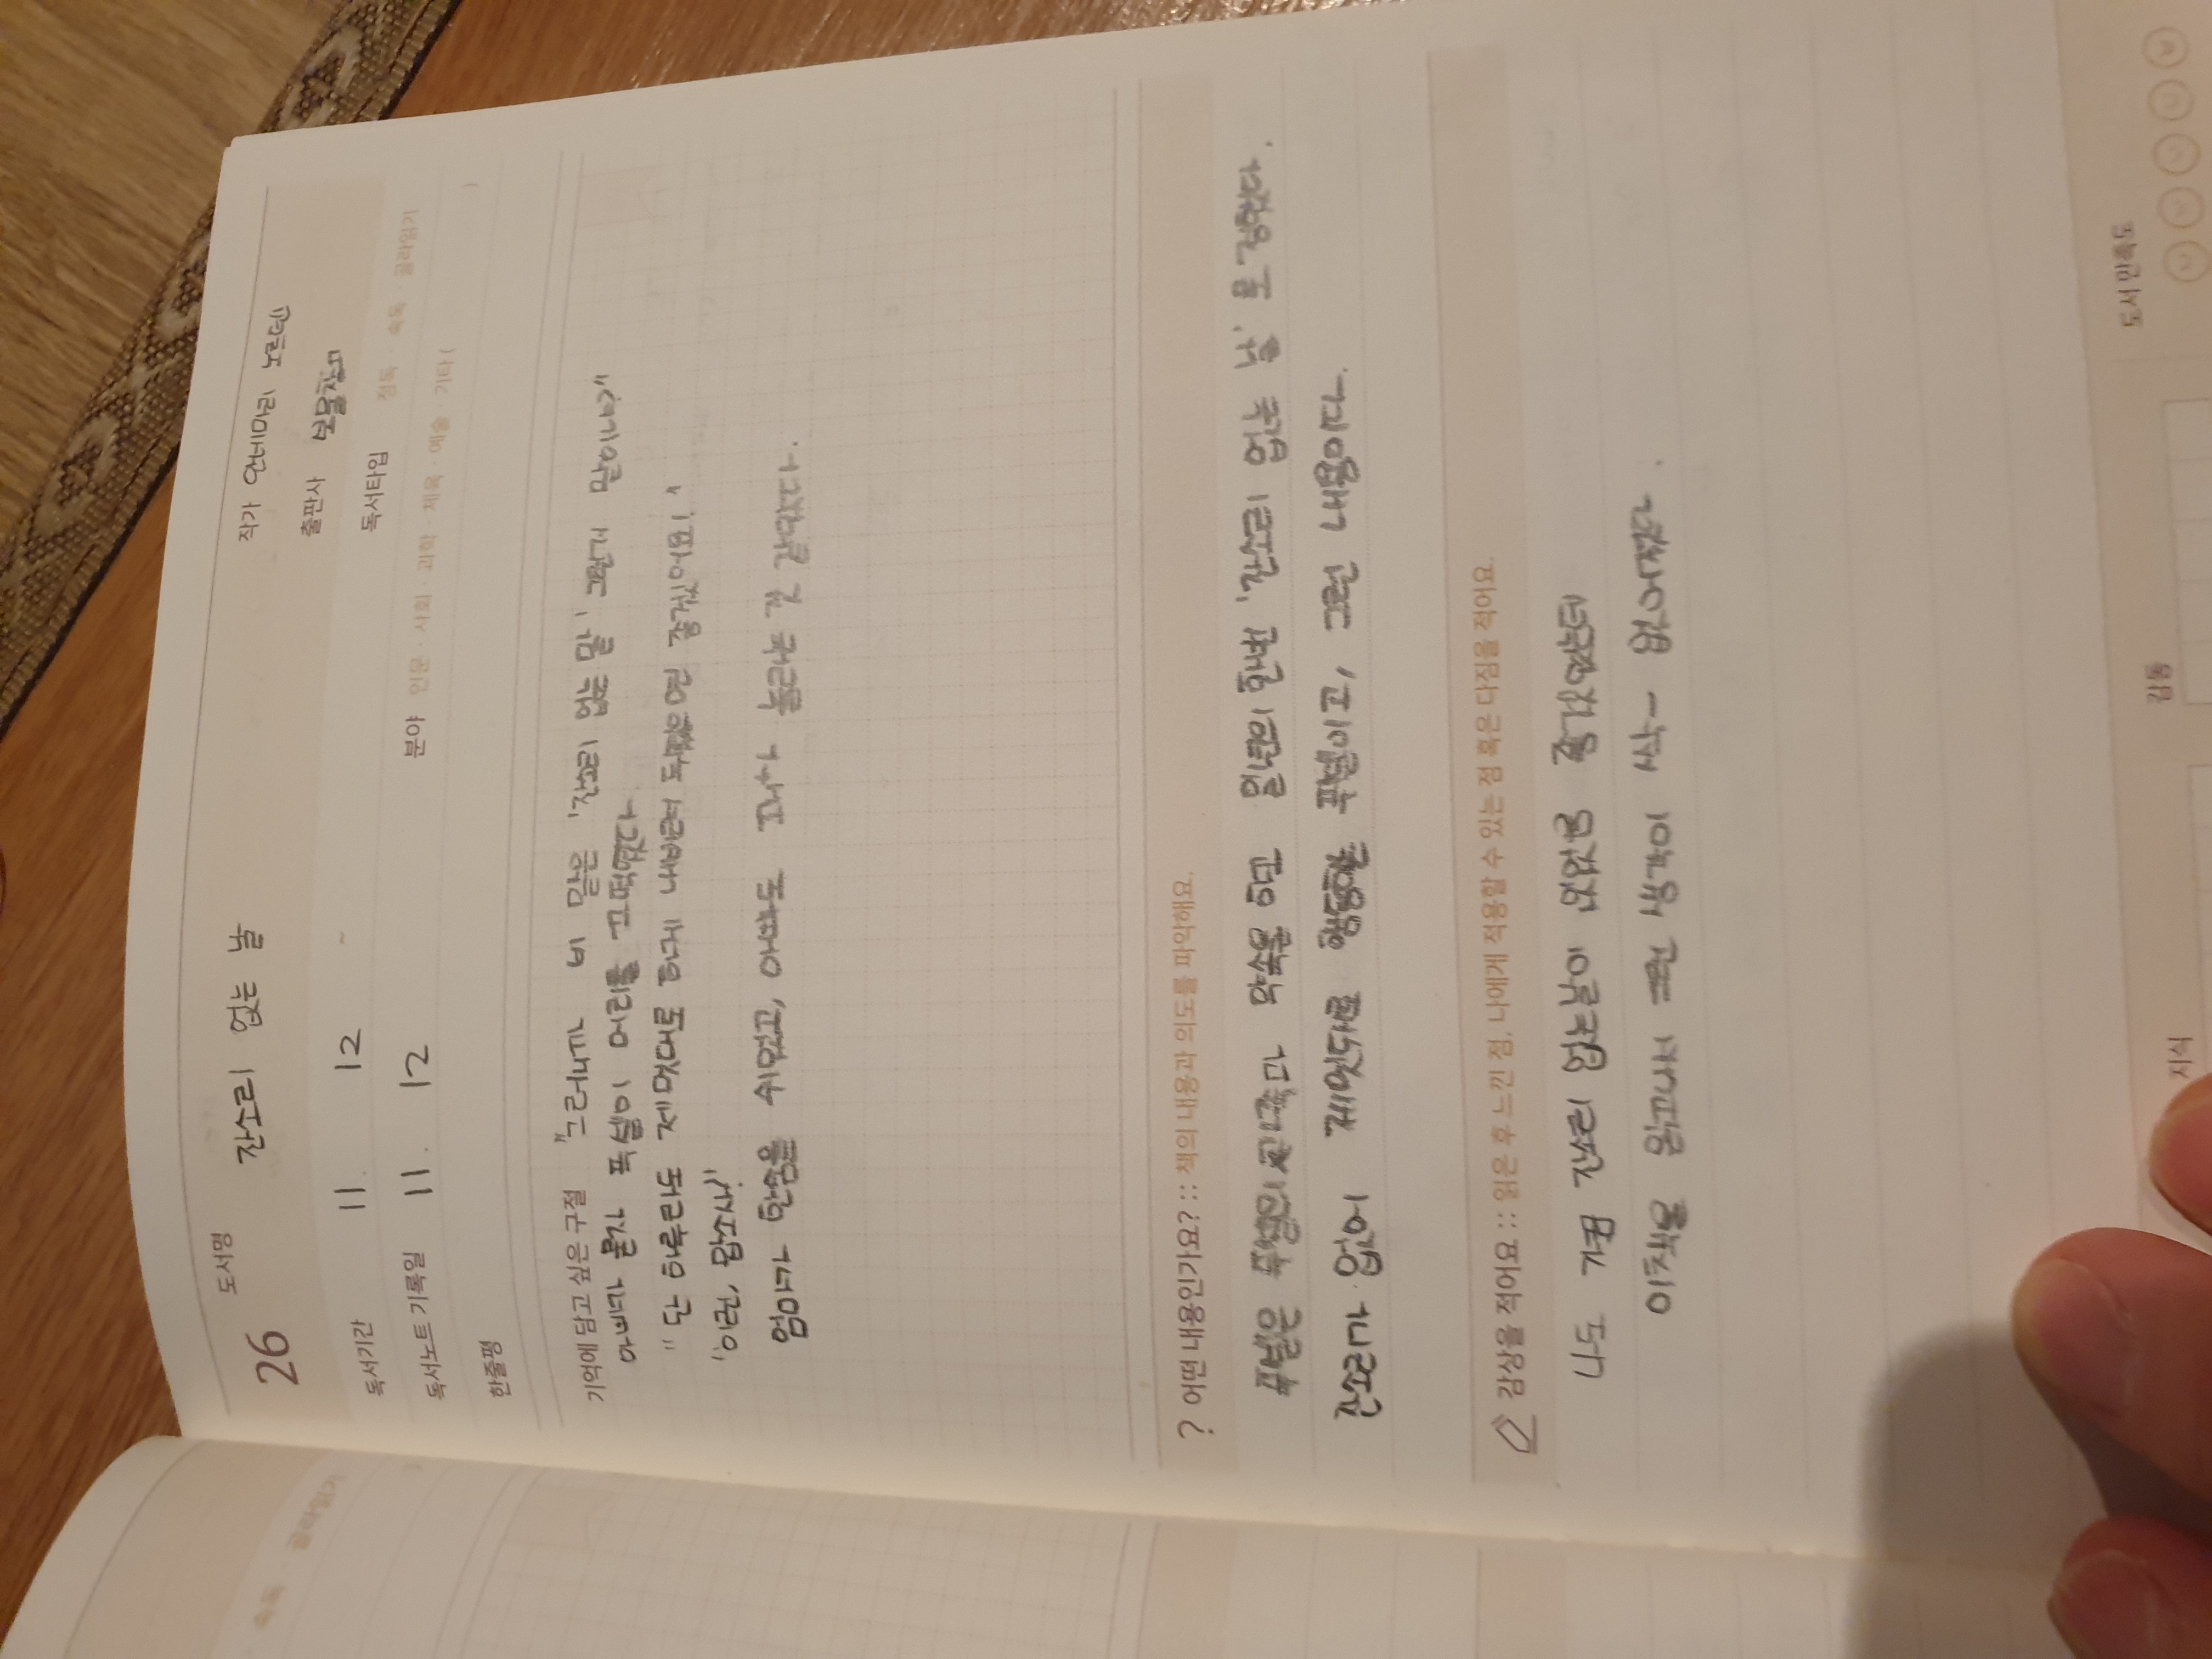 속독 · 골라읽기
26 도서명 잔소리 없는 날
작가 안네마리 노르덴
출판사 보물창고
독서기간 11. 12 ~
독서타입 정독 · 속독 · 골라읽기
독서노트 기록일 11. 12
분야 인문 · 사회 · 과학 · 체육 · 예술 · 기타 ( )
한줄평
기억에 담고 싶은 구절 "그러니까 비 맡은 '잔소리 없는 말' 그런거 말이냐?"
아빠가 묻자 푸셀이 머리를 끄떡였다.
"단 하루라도 제멋대로 하게 내버려 두었으면 좋겠어요!"
"이런, 맙소사!"
엄마가 한숨을 쉬었고, 아빠도 놀라는 것 같았다.
? 어떤 내용인가요? :: 책의 내용과 의도를 파악해요.
푸셀은 푸셀의 가족과 약속을 하고 일년의 한번 '잔소리 없는 날'로 정했다.
잔소리가 없어 제멋대로 행동하는 푸셀이고, 그런 내용이다.
감상을 적어요 :: 읽은 후 느낀 점, 나에게 적용할 수 있는 점 혹은 다짐을 적어요.
나도 가끔 잔소리 없는날이 있었음 좋겠었는데
이책을 읽고나서 그런 생각이 싹- 없어졌다.
지식
감동
도서 만족도